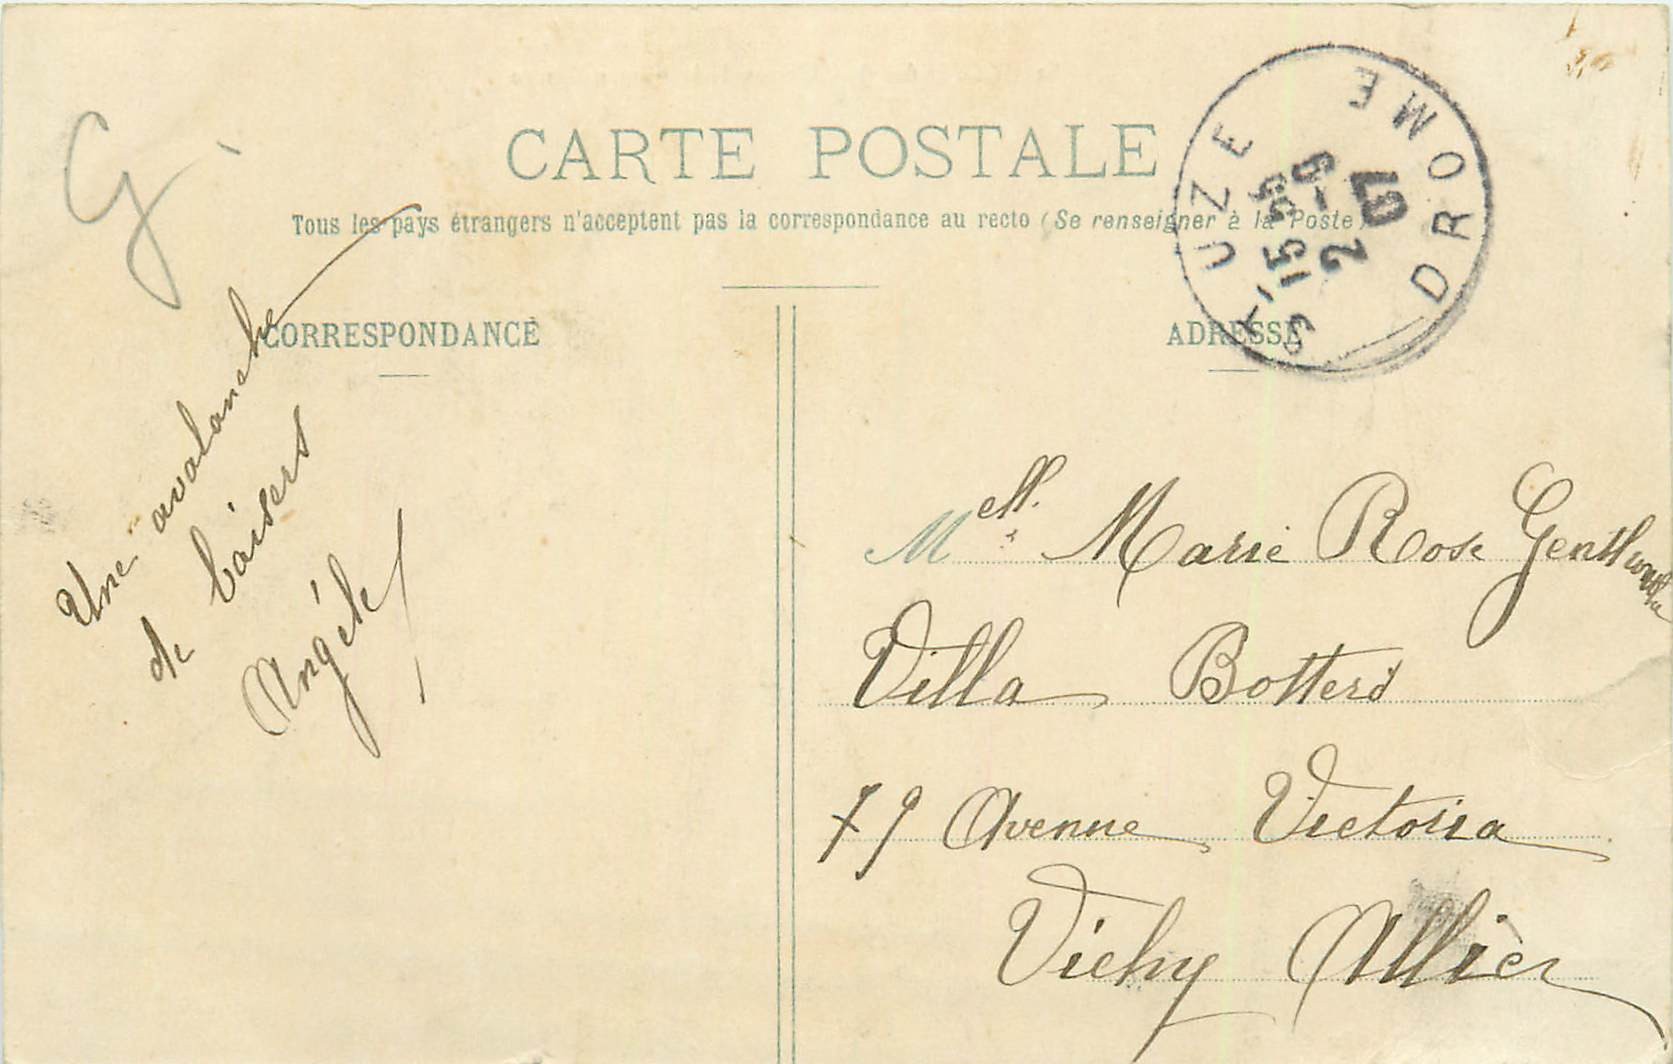 G.
CARTE POSTALE
Tous les pays étrangers n'acceptent pas la correspondance au recto (Se renseigner à la Poste)
CORRESPONDANCE
ADRESSE
Une avalanche
de baisers
Angèle
Mell. Marie Rose
Villa Botterd
79 Avenue Victoria
Vichy Allier
ST UZE DROME
15 55
2 - 9
07